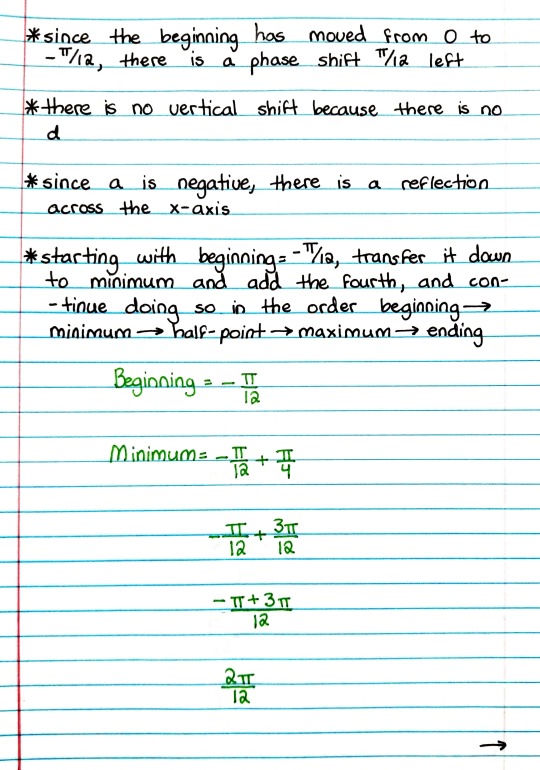 *since the beginning has moved from 0 to
-π/12, there is a phase shift π/12 left
*there is no vertical shift because there is no
d
*since a is negative, there is a reflection
across the x-axis
*starting with beginning=-π/12, transfer it down
to minimum and add the fourth, and con-
-tinue doing so in the order beginning→
minimum→half-point→maximum→ending
Beginning = -π/12
Minimum= -π/12 + π/4
-π/12 + 3π/12
-π+3π/12
2π/12
→